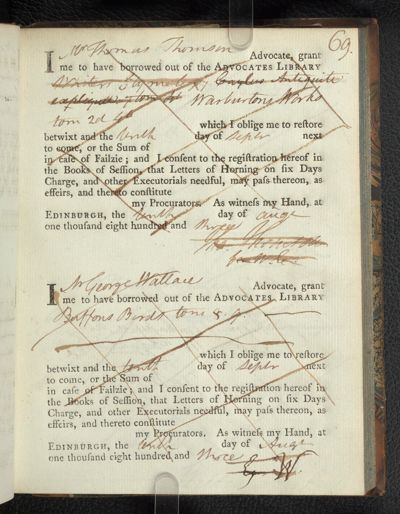 69.
Mr Thomas Thomson Advocate, grant
I me to have borrowed out of the ADVOCATES LIBRARY
Caylus Antiquité
Warburtons Works
tom 2d
betwixt and the tenth which I oblige me to reſtore
day of Septr next
to come, or the Sum of
in caſe of Failzie; and I conſent to the regiſtration hereof in
the Books of Seſſion, that Letters of Horning on ſix Days
Charge, and other Executorials needful, may paſs thereon, as
effeirs, and thereto conſtitute
my Procurators. As witneſs my Hand, at
EDINBURGH, the tenth day of augt
one thouſand eight hundred and three
Mr George Wallace Advocate, grant
I me to have borrowed out of the ADVOCATES LIBRARY
Buffons Birds tom 8. 9.
which I oblige me to reſtore
betwixt and the tenth day of Septr next
to come, or the Sum of
in caſe of Failzie; and I conſent to the regiſtration hereof in
the Books of Seſſion, that Letters of Horning on ſix Days
Charge, and other Executorials needful, may paſs thereon, as
effeirs, and thereto conſtitute
my Procurators. As witneſs my Hand, at
EDINBURGH, the tenth day of Augt
one thouſand eight hundred and three
W.